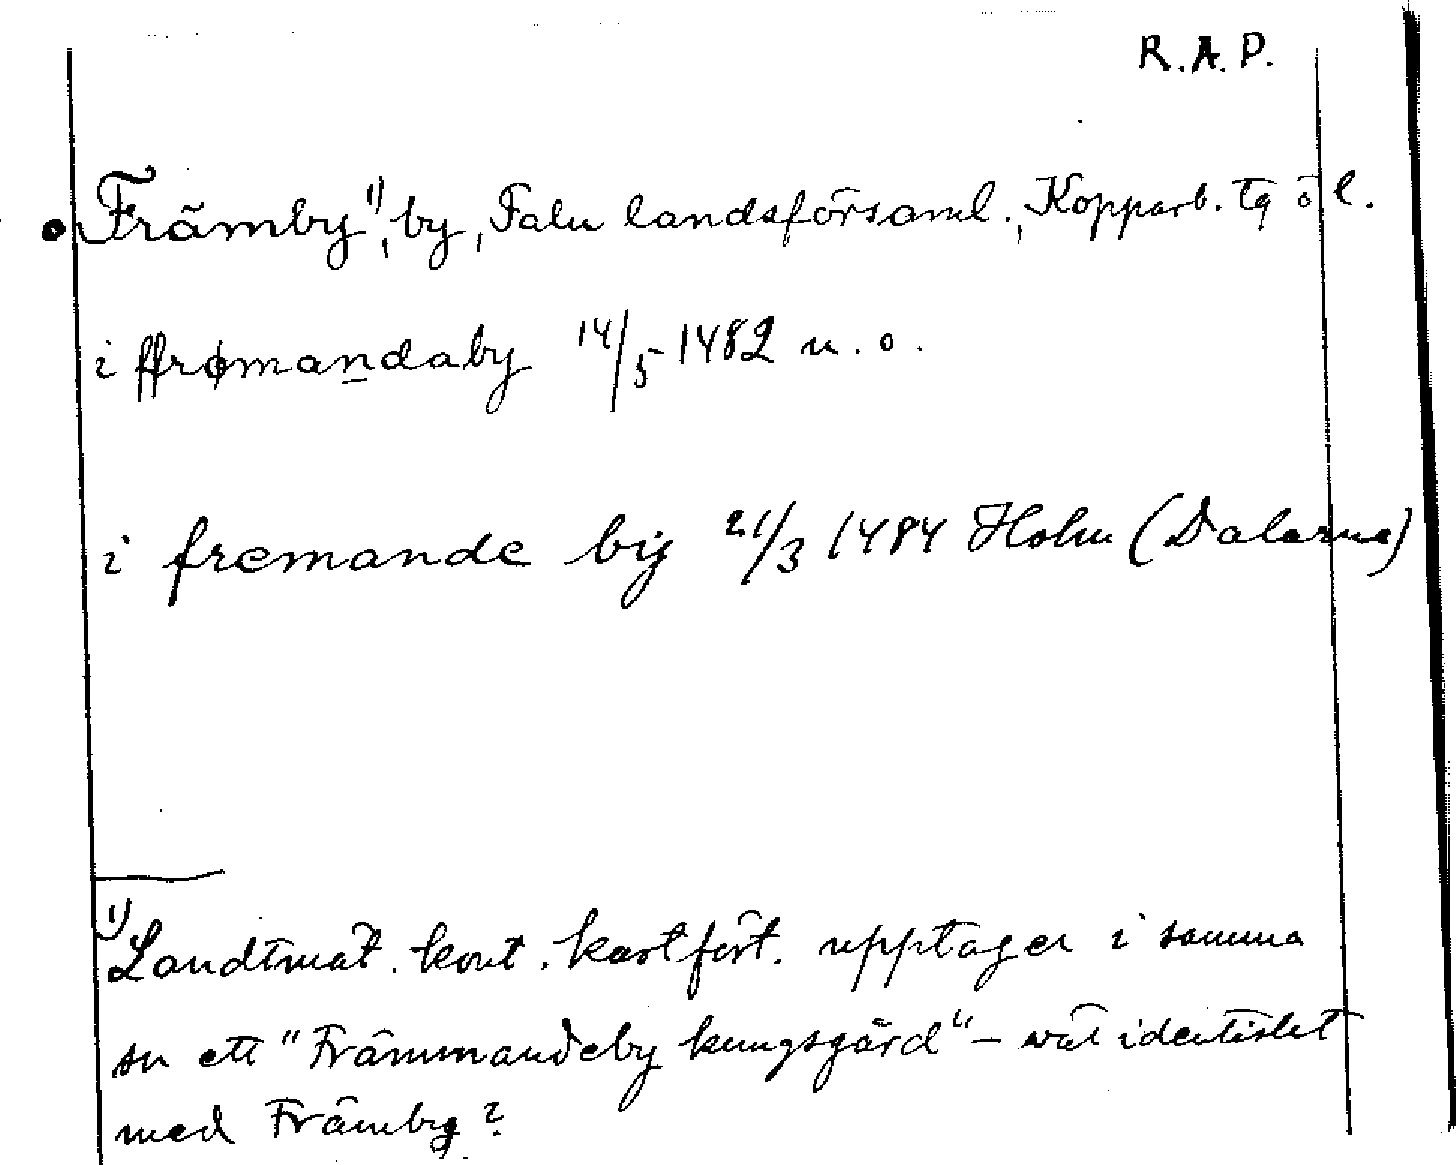 R.A.P.
Främby¹⁾, by, Falu landsförsaml., Kopparb. tg o l.
i ffrømandaby 14/5 1482 u.o.
i fremande bij 21/3 1484 Holm (Dalarna)
¹⁾ Landtmät. kont. kartfört. upptager i samma
sn ett "Främmandeby kungsgård" – väl identiskt
med Främby?